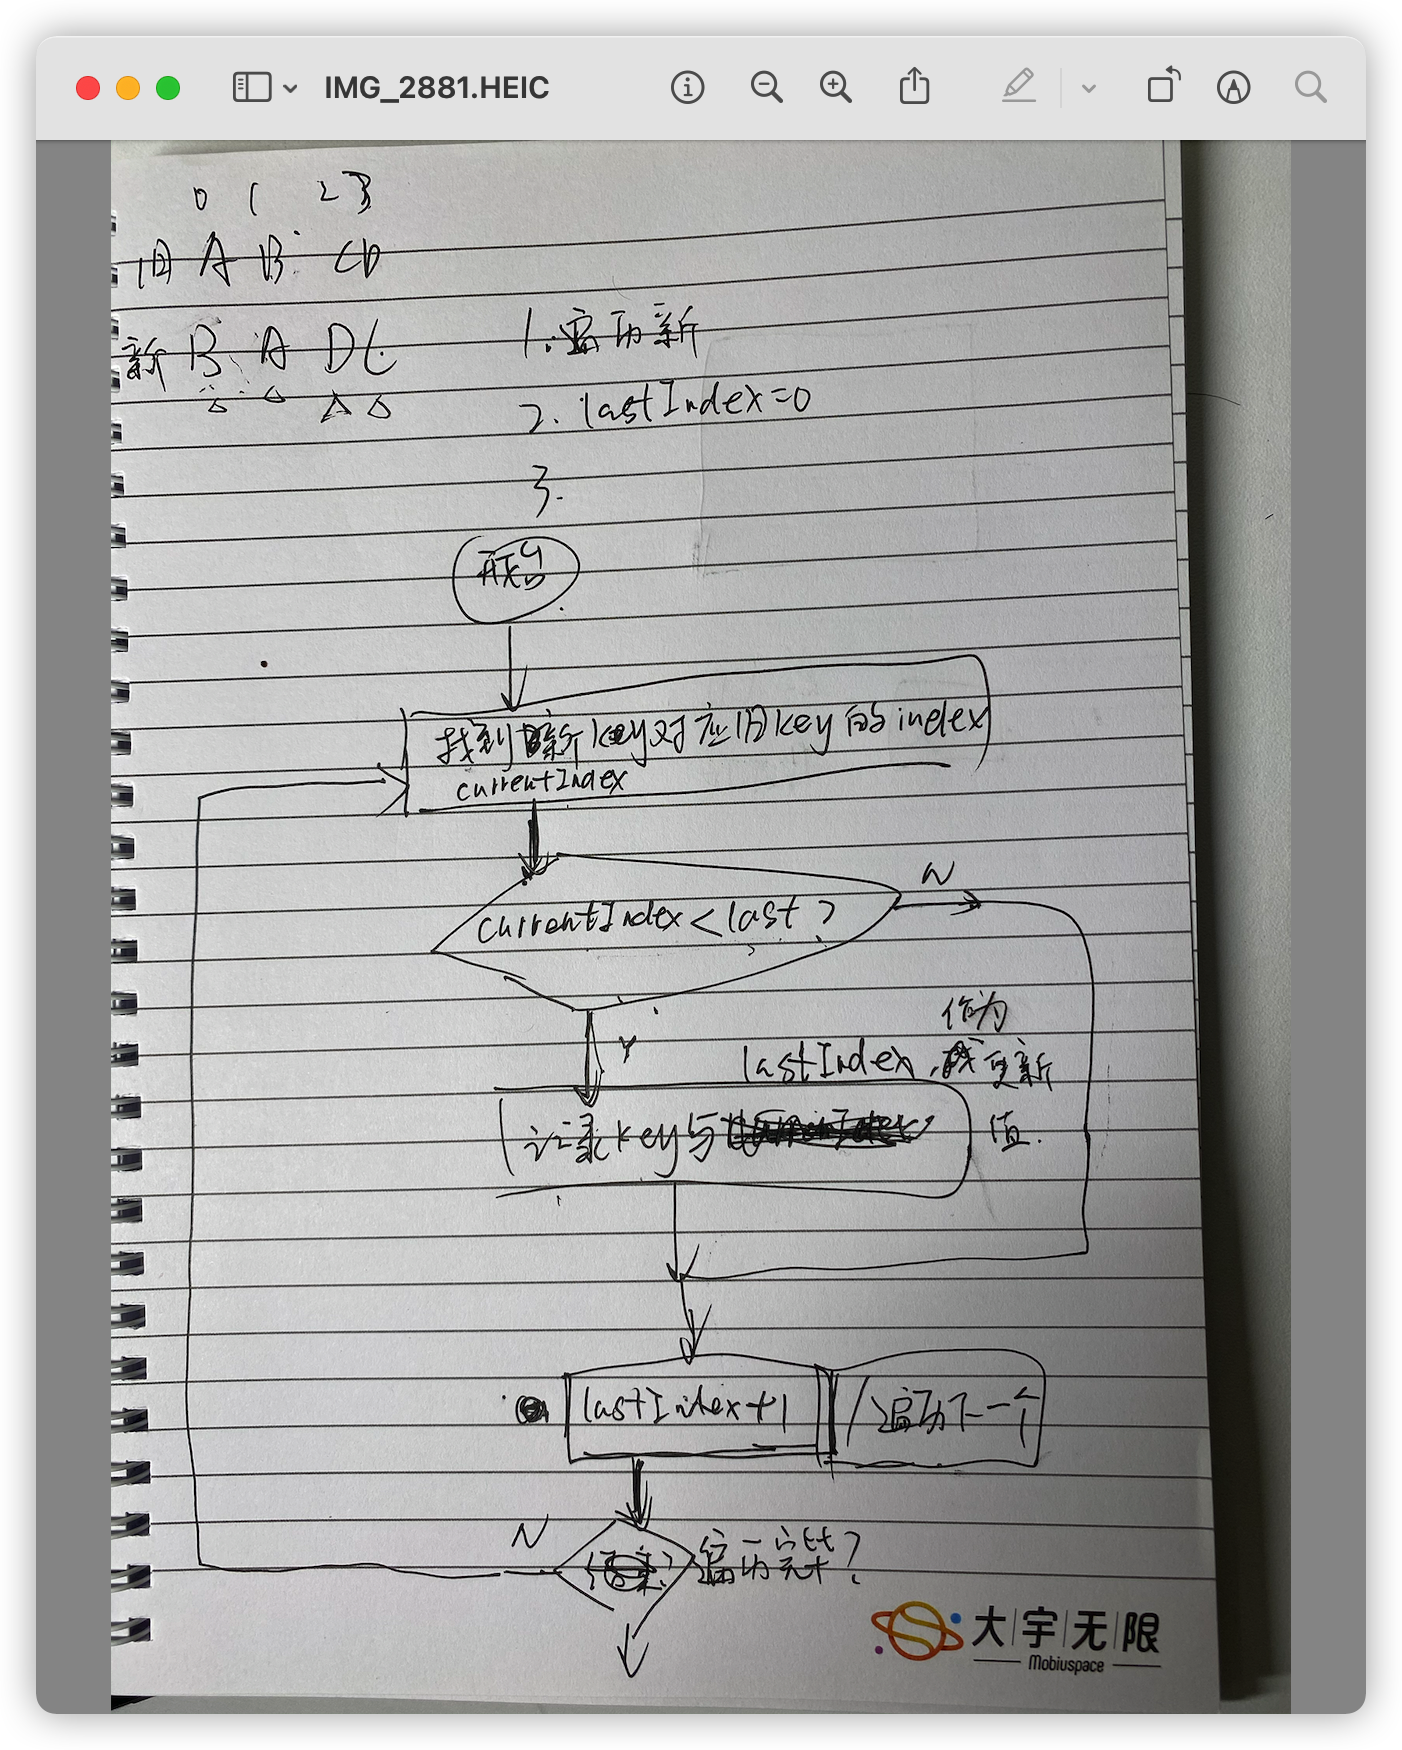 IMG_2881.HEIC
0 1 2 3
旧 A B C D
新 B A D C
1. 遍历新
2. lastIndex=0
3.
开始
找到新key对应旧key的index
currentIndex
N
currentIndex<last?
Y
作为
lastIndex, 更新
记录key与
值.
lastIndex+1
/遍历下一个
N
遍历完毕?
大宇无限
Mobiuspace